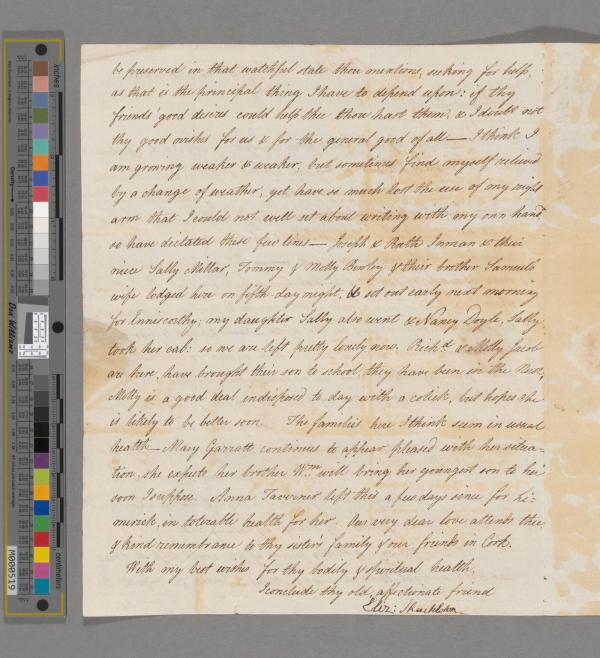 be preserved in that watchful state thou mentions, seeking for help,
as that is the principal thing I have to depend upon: if thy
friends' good desires could help thee thou hast them, & I doubt not
thy good wishes for us & for the general good of all — I think I
am growing weaker & weaker, but sometimes find myself relieved
by a change of weather, yet have so much lost the use of my right
arm that I could not well set about writing with my own hand,
so have dictated these few lines — Joseph & Ruth Inman & their
niece Sally Millar, Tommy & Molly Bewley & their brother Samuel's
wife lodged here on fifth-day night, & set out early next morning
for Enniscorthy; my daughter Sally also went & Nancy Doyle, Sally
took her cab: so we are left pretty lonely now. Richd. & Molly Jacob
are here, have brought their son to school, they have been in the
Molly is a good deal indisposed to day with a colick, but hopes she
is likely to be better soon. The families here I think seem in usual
health — Mary Garratt continues to appear pleased with her situa=
tion. she expects her brother Wm. will bring her youngest son to her
soon I suppose. Anna Taverner left this a few days since for Li=
merick, in tolerable health for her. Our very dear love attends thee,
& kind remembrance to thy sister's family, & our friends in Cork.
With my best wishes for thy bodily & spiritual health,
I conclude thy old, affectionate friend
Eliz: Shackleton
inches
centimetres
Don Williams
M000519